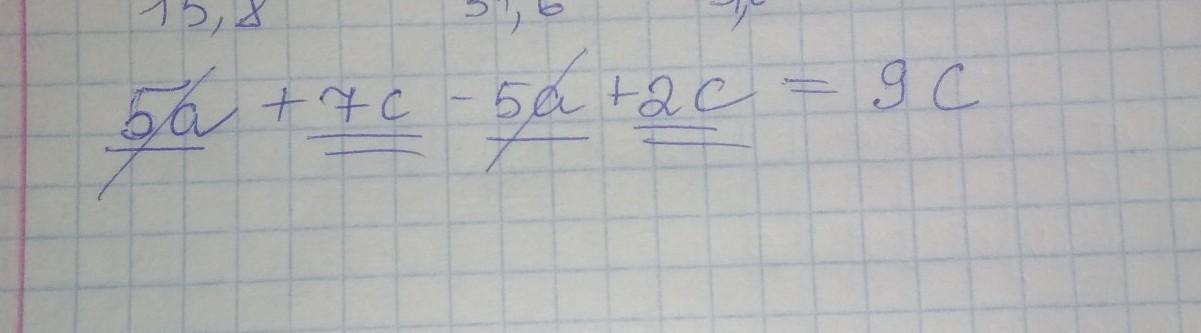 15,8
5a + 7c - 5a + 2c = 9c